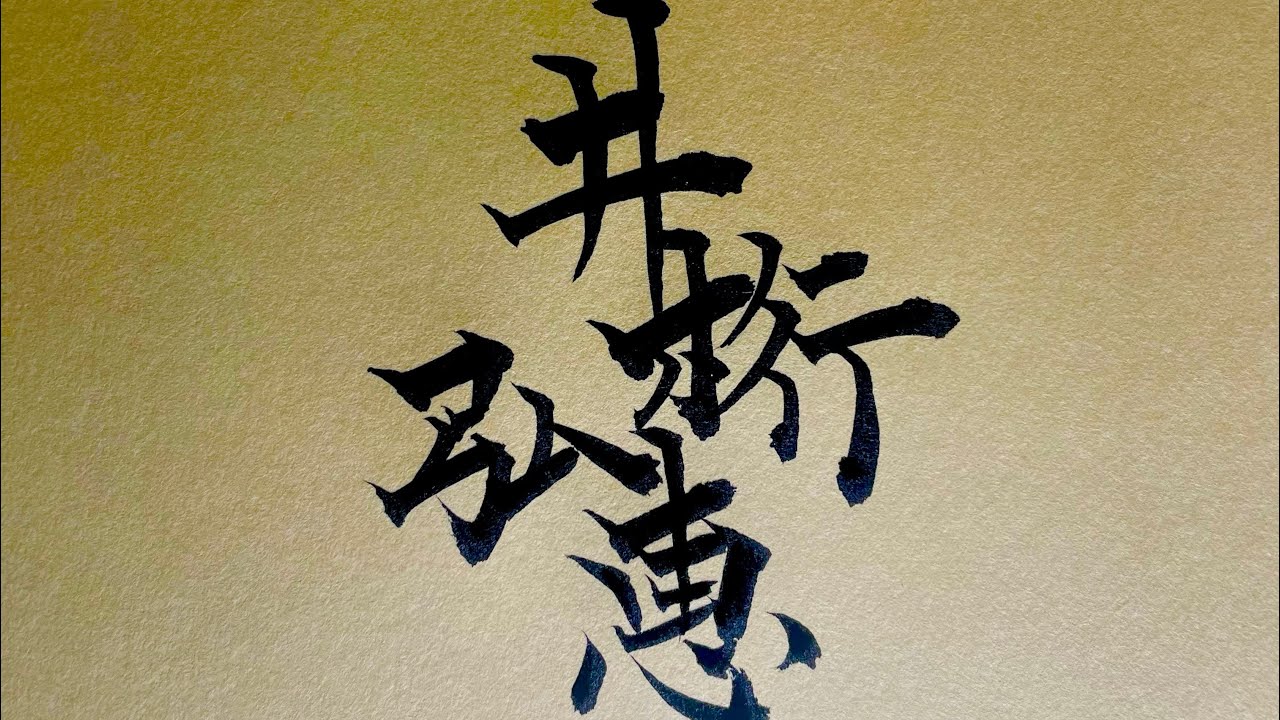 井桁弘恵